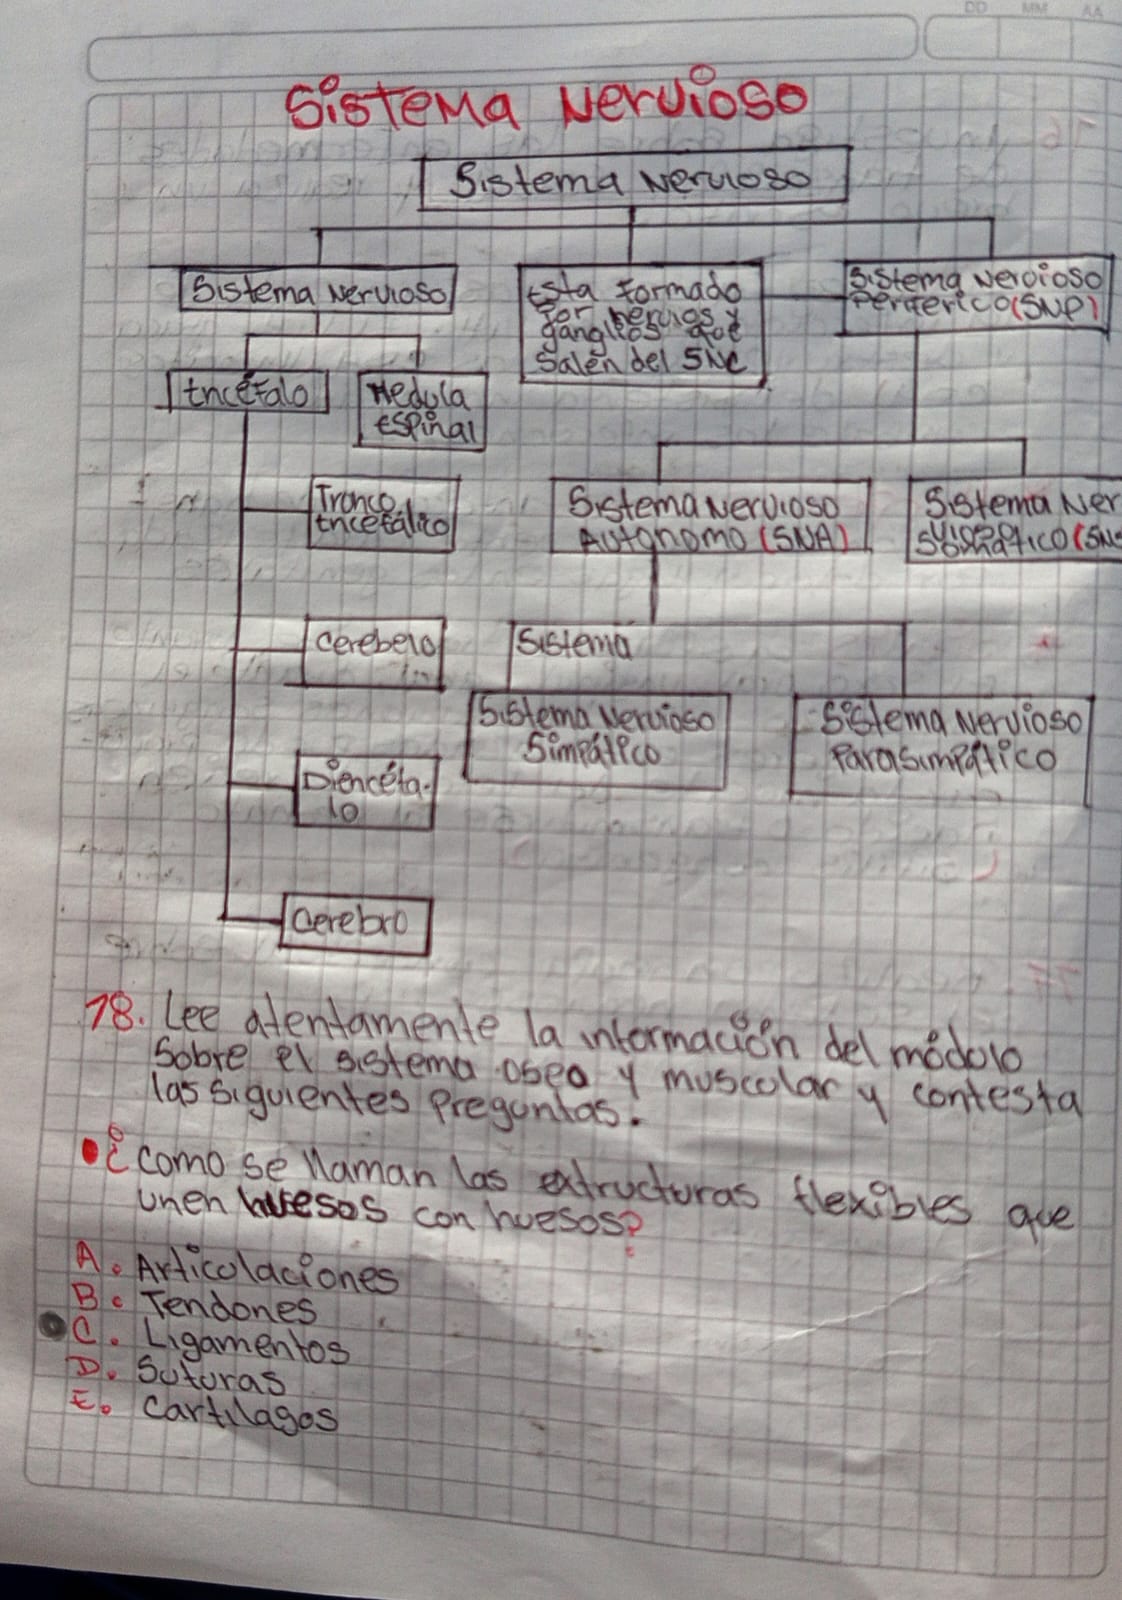 DD MM AA
Sistema Nervioso
Sistema Nervioso
Sistema Nervioso
Encéfalo
Medula
Espinal
Tronco
Encefálico
Cerebelo
Diencéfa-
lo
Cerebro
Esta formado
por nervios y
ganglios que
Salen del SNC
Sistema Nervioso
Periferico (SNP)
Sistema Nervioso
Autónomo (SNA)
Sistema Ner
Somático (SNS
Sistema
Sistema Nervioso
Simpático
Sistema Nervioso
Parasimpático
18. Lee atentamente la información del módulo
Sobre el sistema oseo y muscular y contesta
las siguientes preguntas.
• ¿como se llaman las extructuras flexibles que
unen huesos con huesos?
A. Articulaciones
B. Tendones
C. Ligamentos
D. Suturas
E. Cartilagos